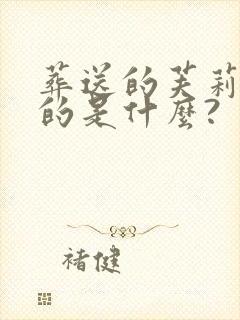 葬送的芙莉
的是什麼？
褚健